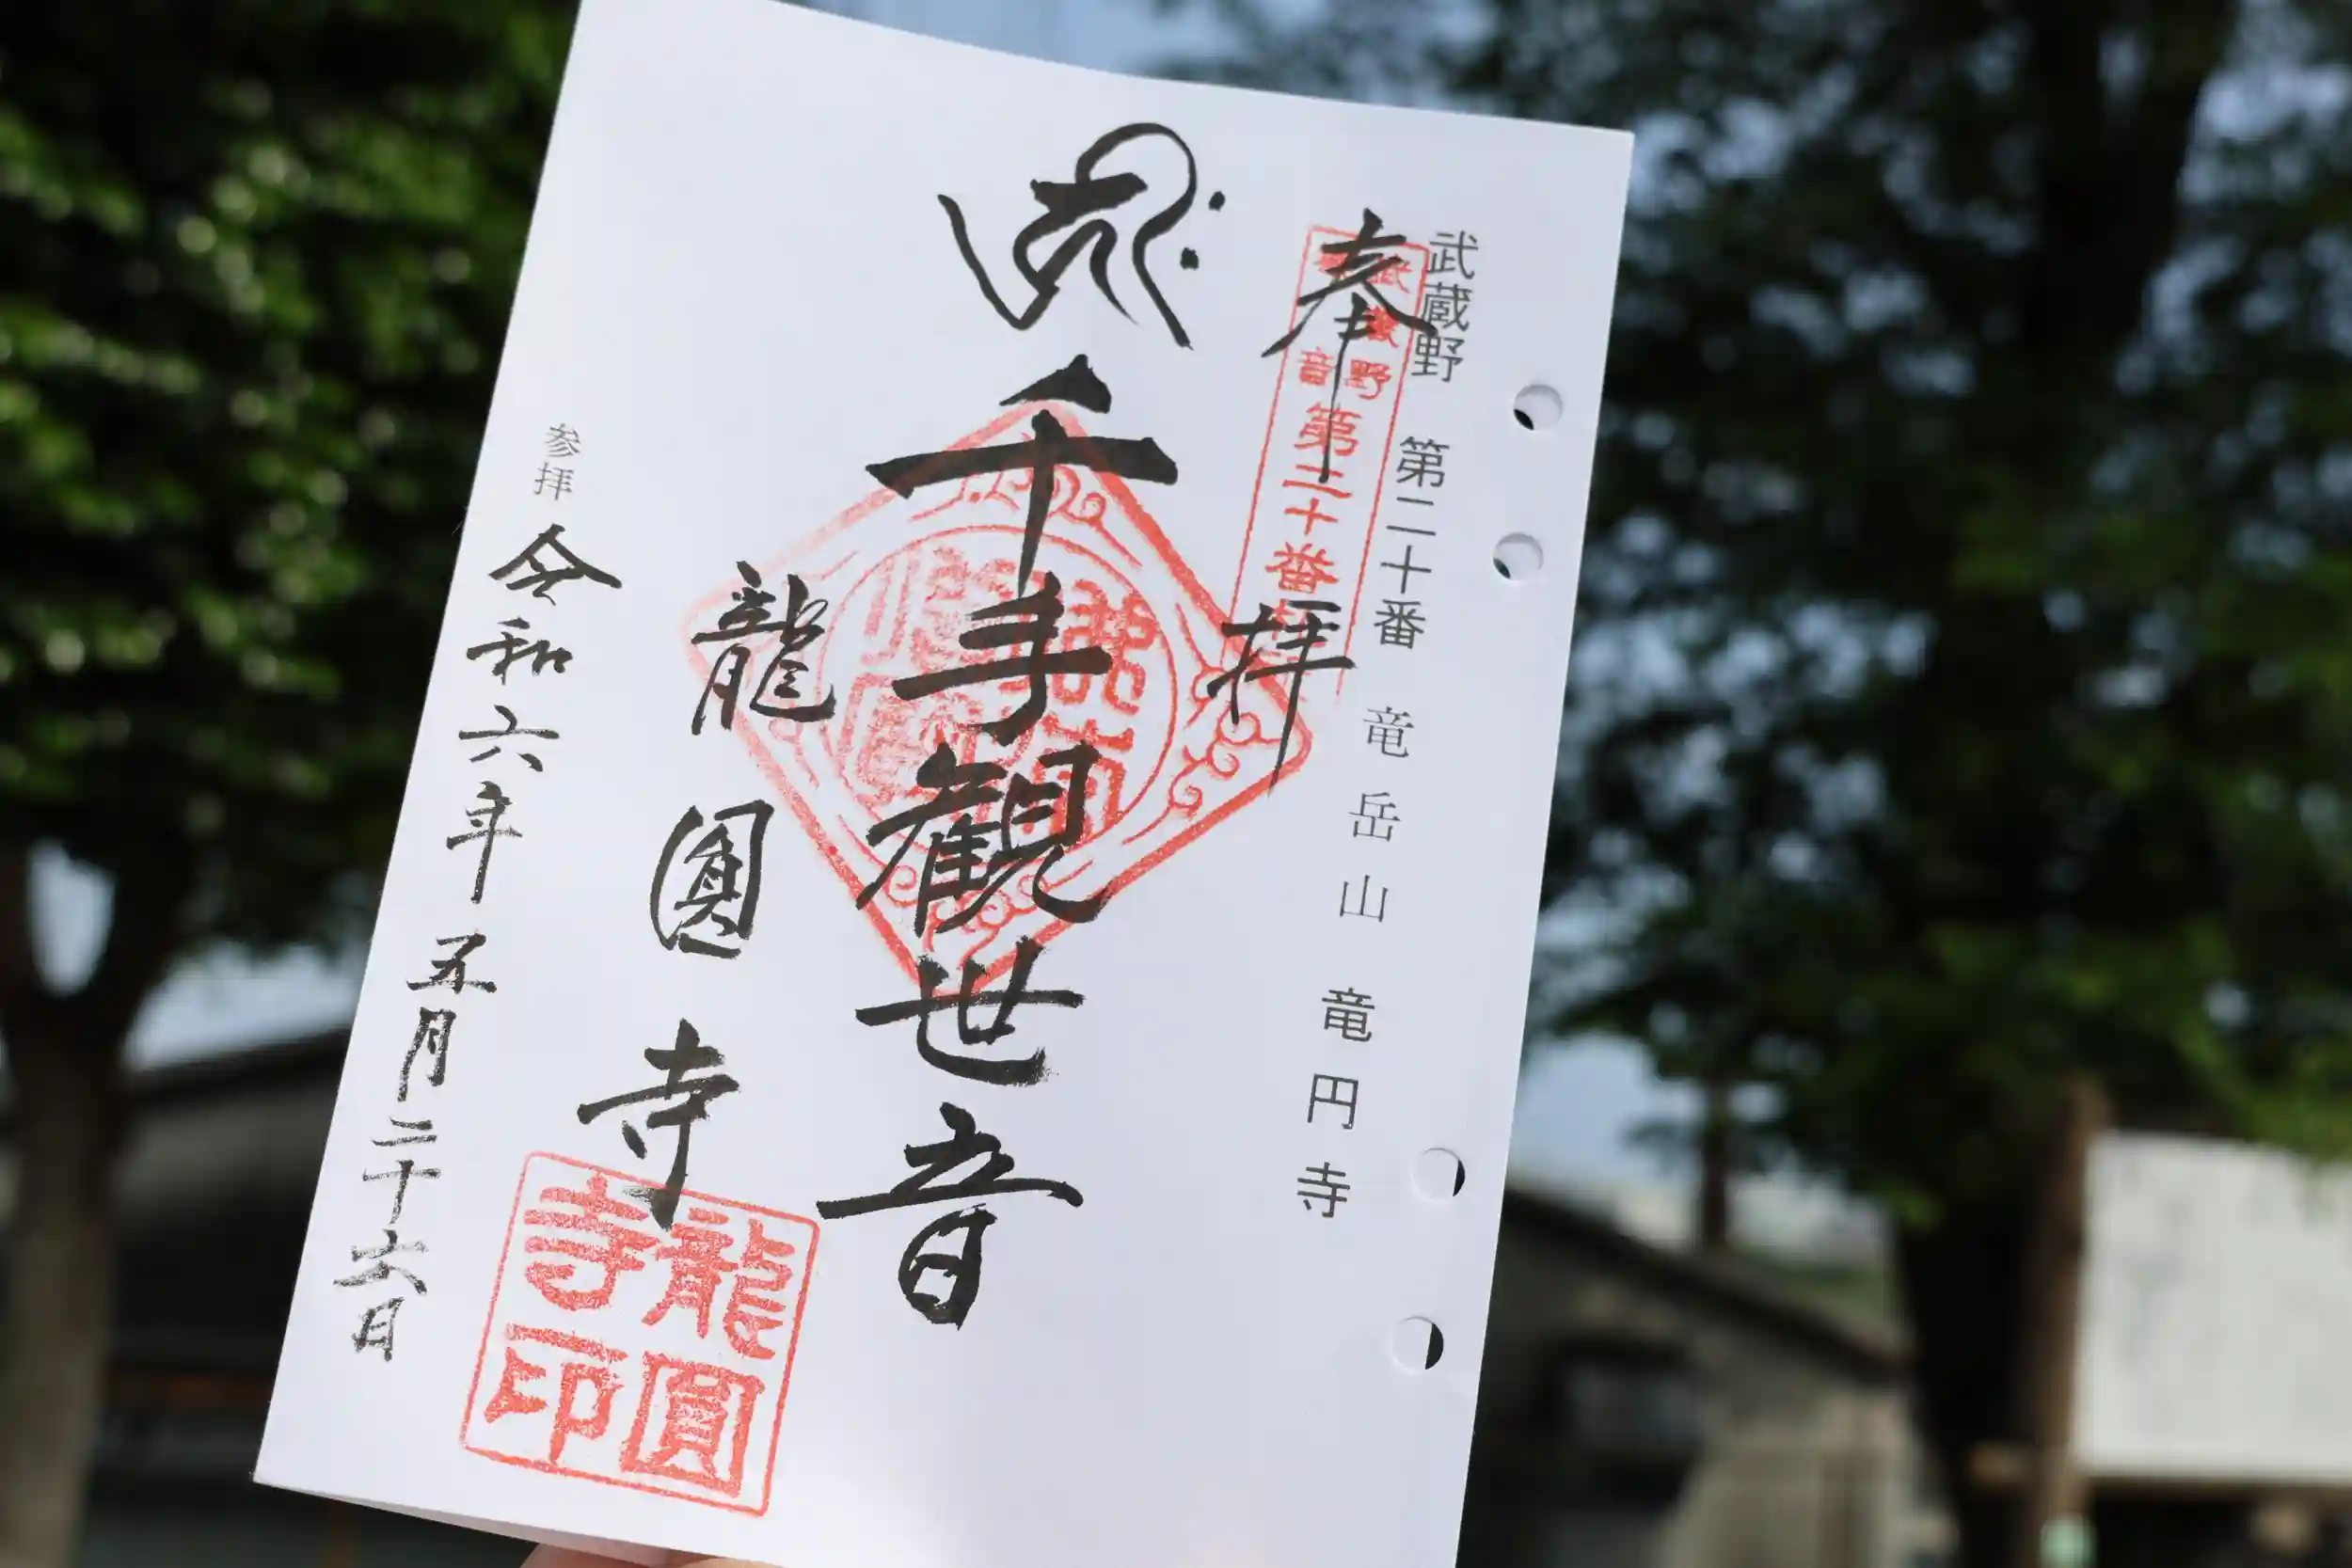 武蔵野 第二十番 竜岳山 竜円寺
奉拝
第二十番
千手観世音
龍圓寺
龍圓
寺印
参拝 令和六年五月二十六日